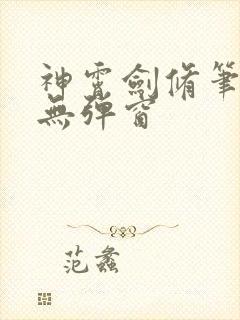 神霄劍脩筆
無彈窗
范蠡